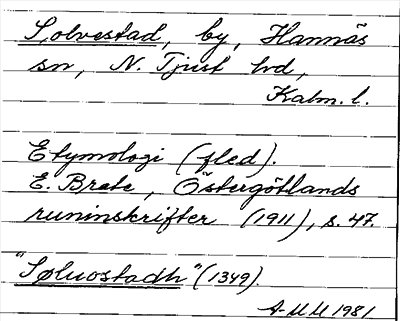 Solvestad, by, Hannäs
sn, N. Tjust hd,
Kalm. l.
Etymologi (fled).
E. Brate, Östergötlands
runinskrifter (1911), s. 47.
"Søluostadh" (1349).
A-M M 1981